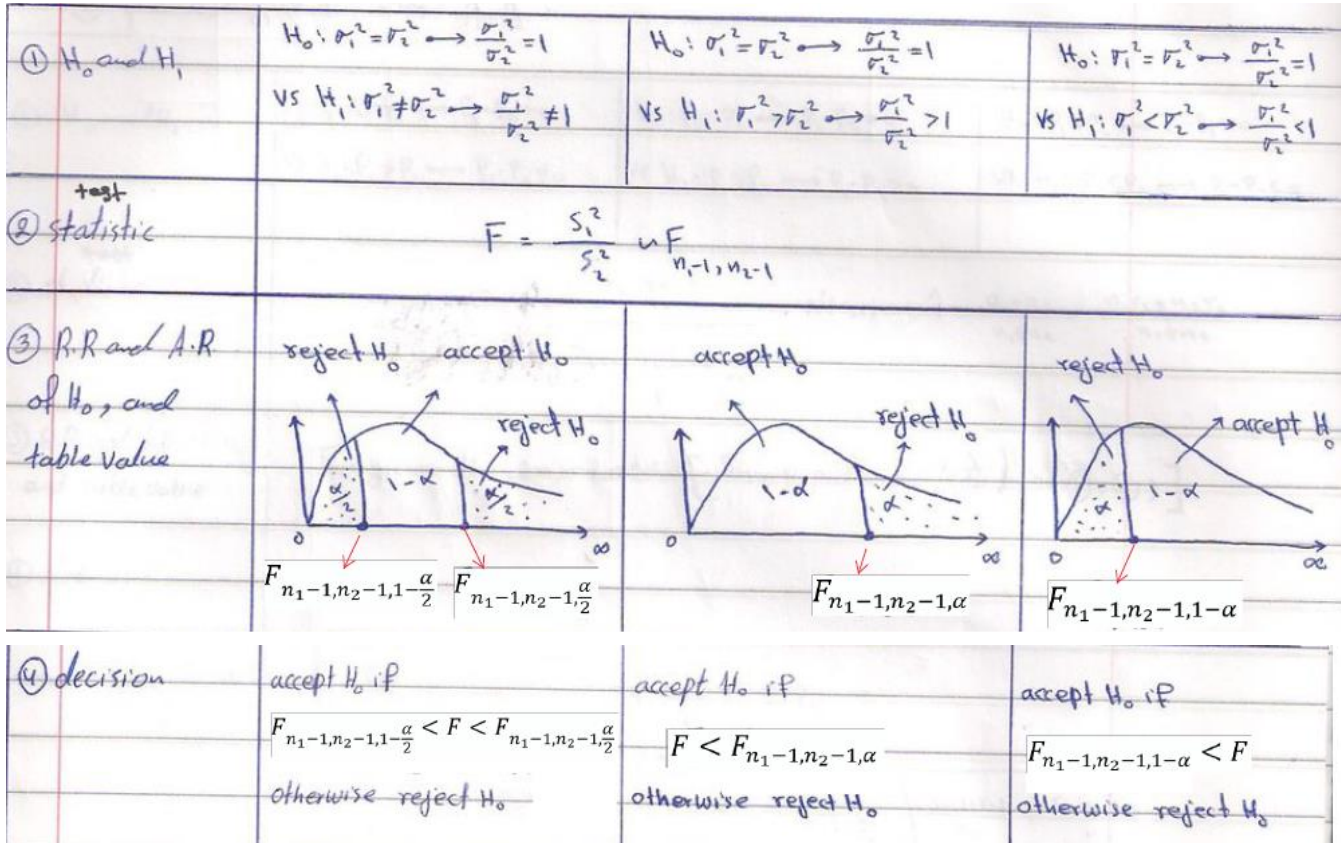 ① H₀ and H₁
H₀: σ₁² = σ₂² → σ₁²/σ₂² = 1
vs H₁: σ₁² ≠ σ₂² → σ₁²/σ₂² ≠ 1
H₀: σ₁² = σ₂² → σ₁²/σ₂² = 1
vs H₁: σ₁² > σ₂² → σ₁²/σ₂² > 1
H₀: σ₁² = σ₂² → σ₁²/σ₂² = 1
vs H₁: σ₁² < σ₂² → σ₁²/σ₂² < 1
test
② statistic
F = S₁²/S₂² ~ F n₁-1, n₂-1
③ R.R and A.R
of H₀, and
table value
reject H₀ accept H₀
reject H₀
α/2 1-α α/2
0 ∞
F n₁−1,n₂−1,1−α/2 F n₁−1,n₂−1,α/2
accept H₀
reject H₀
1-α α
0 ∞
F n₁−1,n₂−1,α
reject H₀
accept H₀
α 1-α
0 ∞
F n₁−1,n₂−1,1−α
④ decision
accept H₀ if
F n₁−1,n₂−1,1−α/2 < F < F n₁−1,n₂−1,α/2
otherwise reject H₀
accept H₀ if
F < F n₁−1,n₂−1,α
otherwise reject H₀
accept H₀ if
F n₁−1,n₂−1,1−α < F
otherwise reject H₀